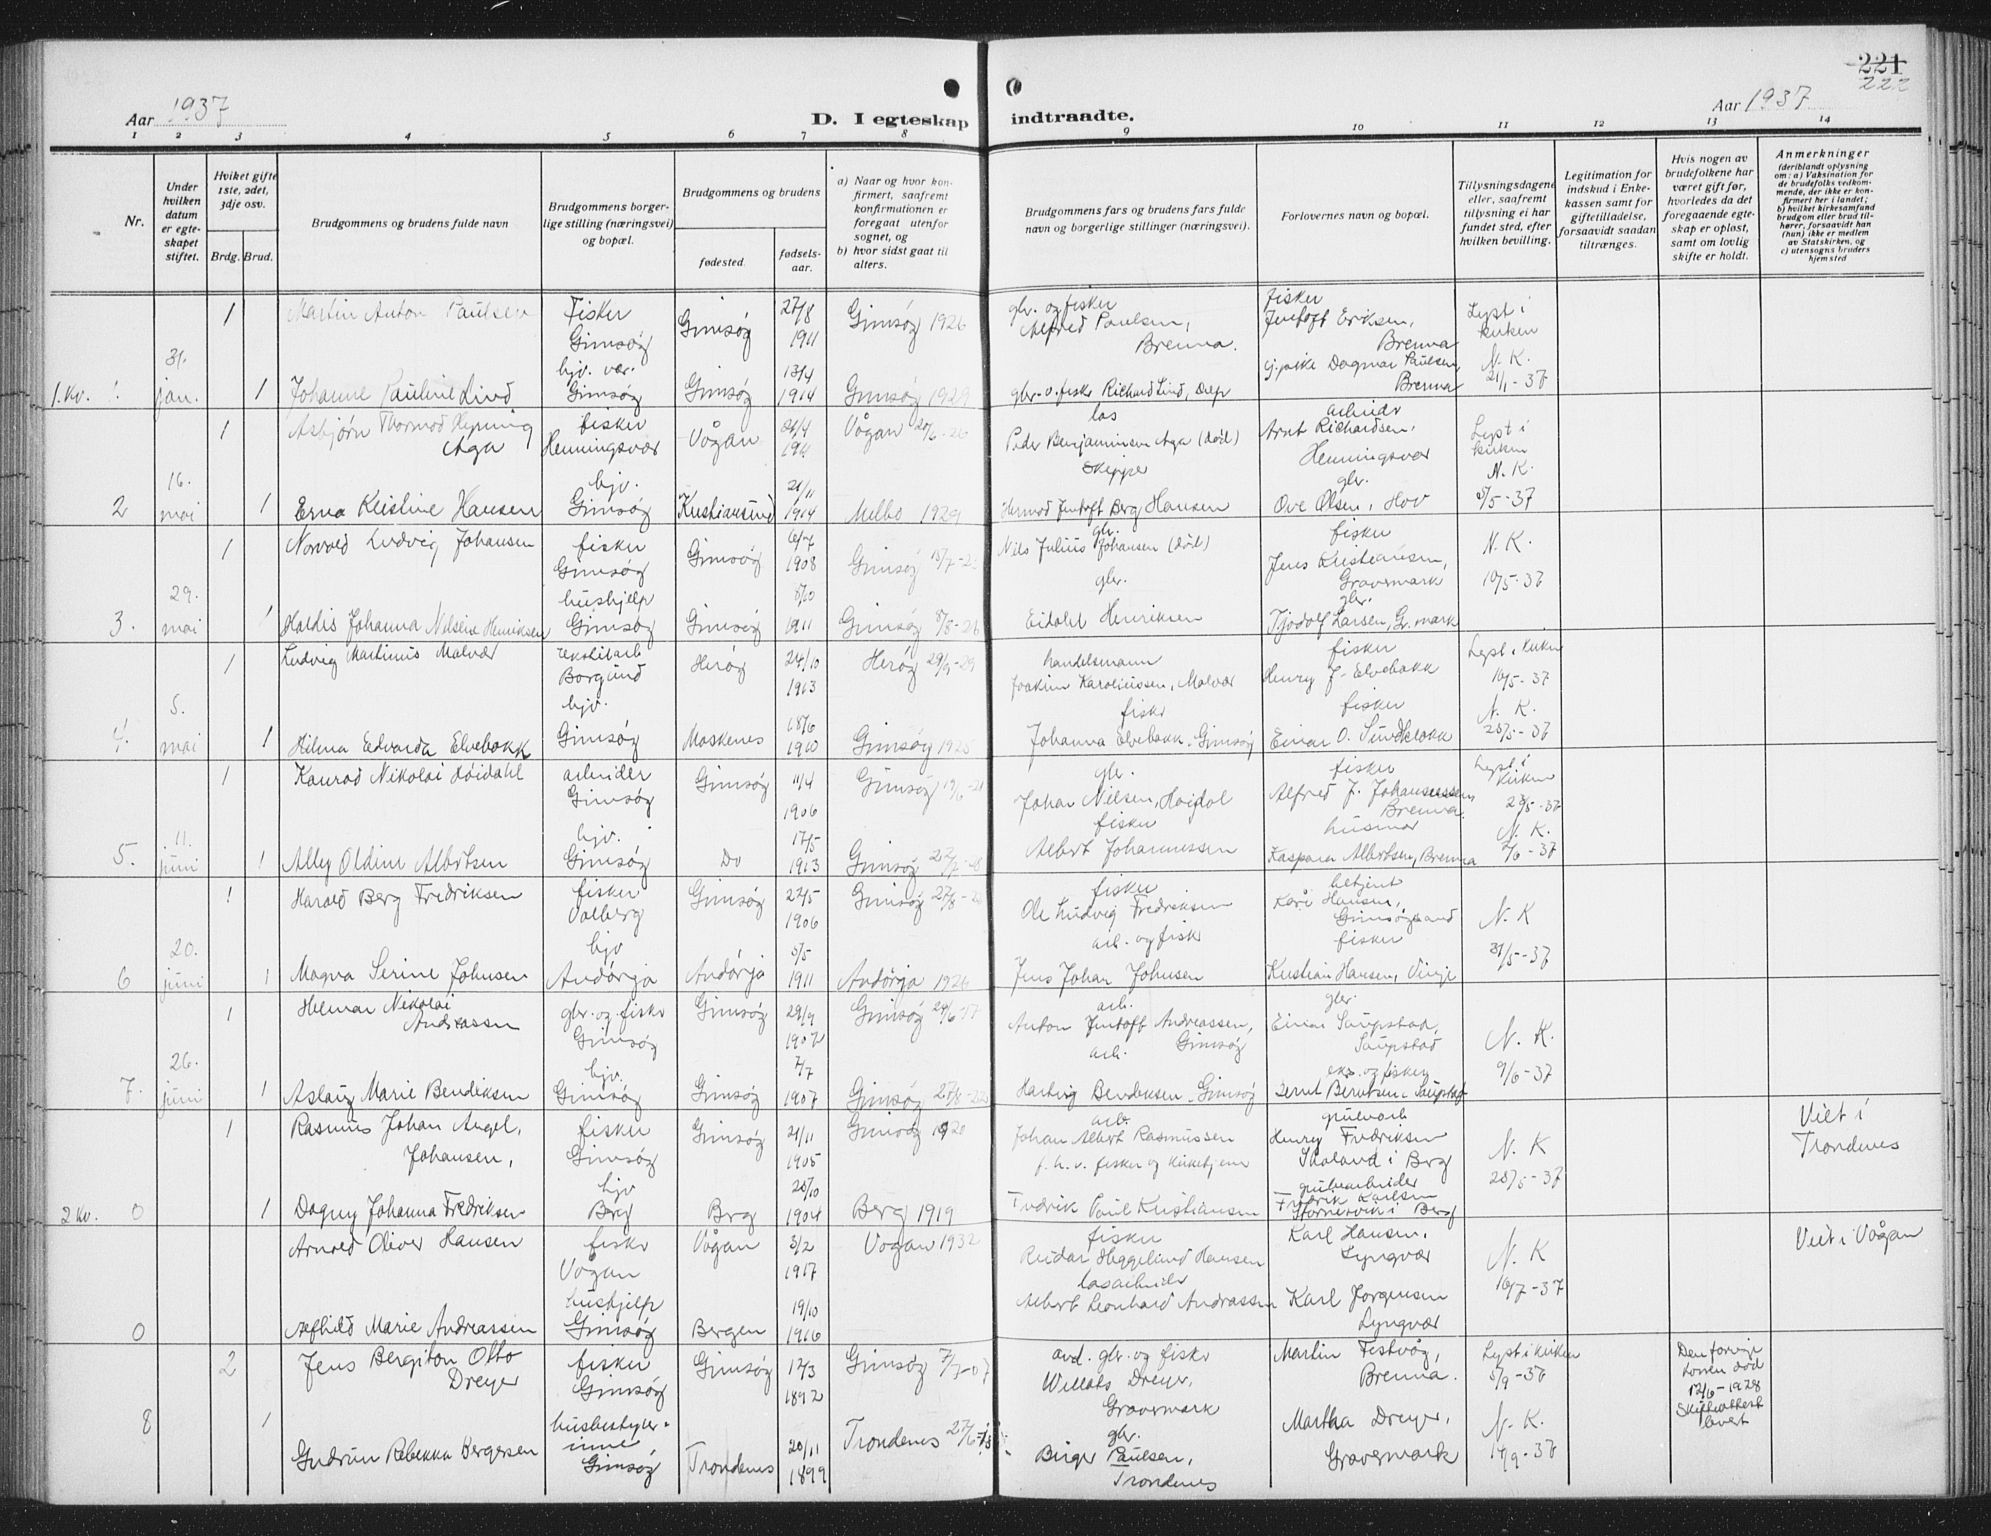 221
222
Aar 1937
D. I egteskap indtraadte.
Aar 1937
1 2 3 4 5 6 7 8 9 10 11 12 13 14
Nr.
Under hvilken datum er egteskapet stiftet.
Hviket gifte 1ste, 2det, 3dje osv.
Brdg. Brud.
Brudgommens og brudens fulde navn
Brudgommens borgerlige stilling (næringsvei) og bopæl.
Brudgommens og brudens
fødested.
fødselsaar.
a) Naar og hvor konfirmert, saafremt konfirmationen er foregaat utenfor sognet, og
b) hvor sidst gaat til alters.
Brudgommens fars og brudens fars fulde navn og borgerlige stillinger (næringsvei).
Forlovernes navn og bopæl.
Tillysningsdagene eller, saafremt tillysning ei har fundet sted, efter hvilken bevilling.
Legitimation for indskud i Enkekassen samt for giftetilladelse, forsaavidt saadan tiltrænges.
Hvis nogen av brudefolkene har været gift før, hvorledes da det foregaaende egteskap er opløst, samt om lovlig skifte er holdt.
Anmerkninger
(deriblandt oplysning om: a) Vaksination for de brudefolks vedkommende, der ikke er konfirmert her i landet; b) hvilket kirkesamfund brudgom eller brud tilhører, forsaavidt han (hun) ikke er medlem av Statskirken, og c) utensogns bruders hjemsted
1 Martin Anton Paulsen Fisker Gimsøy Gimsøy 27/8 1911 Gimsøy 1926 gbr. og fisker Alfred Paulsen, Brenna. fisker Jentoft Eriksen, Brenna Lyst i kirken
1. kv. 1 31. jan. 1 Johanne Pauline Lind hjv. vær. Gimsøy Gimsøy 13/4 1914 Gimsøy 1929 gbr. o. fisker Richard Lind, Delp Dagmar Paulsen, Brenna N. K. 21/1-37
1 Asbjørn Thormod Hyning Aga fisker Henningsvær Vågan 26/4 1911 Vågan 20/6-26 Peder Benjaminsen Aga (død) arbeider Arnt Richardsen, Henningsvær Lyst i kirken
2 16. mai 1 Erna Kristine Hansen hjv. Gimsøy Kristiansund 21/11 1914 Melbo 1929 skipper Hermod Jentoft Berg Hansen gbr. Ove Olsen, Hov N. K. 8/5-37
1 Norvald Ludvig Johansen fisker Gimsøy Gimsøy 6/7 1908 Gimsøy gbr. Nils Julius Johansen (død) fisker Jens Kristiansen, Gravermark N. K.
3. 29. mai 1 Haldis Johanna Nilsine Henriksen hushjelp Gimsøy Gimsøy 8/10 1911 Gimsøy 8/8-26 gbr. Eidolf Henriksen gbr. Tjodolf Larsen, Gr.mark 10/5-37
1 Ludvig Martinus Malvær tekstilarb Borgund Herøy 24/10 1913 Herøy 29/9-29 handelsmann Joakim Karoliussen, Malvær fisker Henry J. Elvebakk Lyst i kirken 16/5-37
4. 5. mai 1 Hilma Edvarda Elvebakk hjv. Gimsøy Moskenes 18/6 1910 Gimsøy 1925 fisker Johanna Elvebakk, Gimsøy fisker Einar O. Sundklakk N. K. 28/5-37
1 Konrad Nikolai Høidahl arbeider Gimsøy Gimsøy 11/4 1906 Gimsøy 19/6-21 gbr. Johan Nilsen, Høidal fisker Alfred J. Johannessen, Brenna. Lyst i kirken 23/5-37
5. 11. juni 1 Alley Oldine Albertsen hjv. Gimsøy Do 17/5 1913 Gimsøy fisker Albert Johannessen husmor Kaspara Albertsen, Brenna N. K. 7/6-37
1 Harald Berg Fredriksen fisker Valberg Gimsøy 22/5 1906 Gimsøy fisker Ole Ludvig Fredriksen betjent Kåre Hansen, Gimsøysand N. K
6 20. juni 1 Magna Serine Johnsen hjv Andørja Andørja 5/5 1911 Andørja 1926 arb. og fisker Jens Johan Johnsen fisker Kristian Hansen, Vinje 31/5-37
1 Helmar Nikolai Andreassen gbr. og fisker Gimsøy Gimsøy 29/9 1902 Gimsøy 24/6-17 arb. Anton Jentoft Andreassen, Gimsøy gbr. Einar Saupstad, Saupstad N. K.
7. 26. juni 1 Aslaug Marie Bendiksen hjv. Gimsøy Gimsøy 7/7 1907 Gimsøy 27/8-22 arb. Hartvig Bendiksen, Gimsøy eks. og fisker Bernt Berntsen, Saupstad 9/6-37
1 Rasmus Johan Angel, Johansen, fisker Gimsøy Gimsøy 21/11 1905 Gimsøy 1920 arb. Johan Albert Rasmussen f. h. v. fisker og kirketjener grubearb Henry Fredriksen Skaland i Berg N. K Viet i Trondenes
2 kv. 0 1 Dagny Johanna Fredriksen hjv Berg Berg 20/10 1904 Berg 1919 Fredrik Paul Kristiansen grubearbeider Fredrik Karlsen i Berg 28/5-37
Arnold Oliver Hansen fisker Vågan Vågan 3/2 1917 Vågan 1932 fisker Reidar Heggelund Hansen Karl Hansen, Lyngvær N. K Viet i Vågan
0 Alfhild Marie Andreassen hushjelp Gimsøy Bergen 19/10 1916 løsarbeider Albert Leonhard Andreassen Karl Jørgensen Lyngvær 16/7-37
2 Jens Bergiton Otto Dreyer fisker Gimsøy Gimsøy 12/3 1892 Gimsøy 7/7-07 avd. gbr. og fisker Willats Dreyer, Gravermark Martin Festvåg, Brenna. Lyst i kirken 5/9-36 Den forrige konen død 12/6-1928 Skifteattest levert
8 1 Gudrun Rebekka Bergersen husbestyrerinne Gimsøy Trondenes 20/11 1899 Trondenes gbr. Birger Paulsen, Trondenes Martha Dreyer, Gravermark N. K. 14/9-36